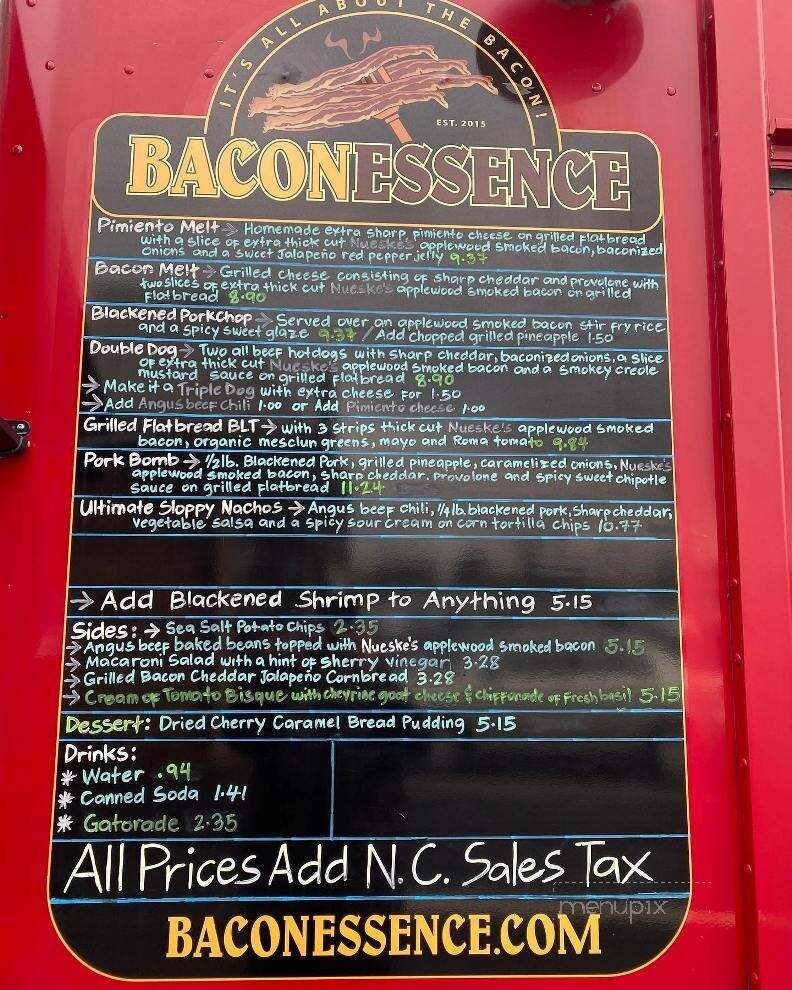 IT'S ALL ABOUT THE BACON!
EST. 2015
BACONESSENCE
Pimiento Melt → Homemade extra sharp pimiento cheese on grilled flatbread
with a slice of extra thick cut Nueske's applewood smoked bacon, baconized
onions and a sweet Jalapeño red pepper jelly 9.37
Bacon Melt → Grilled cheese consisting of sharp cheddar and provolone with
two slices of extra thick cut Nueske's applewood smoked bacon on grilled
flatbread 8.90
Blackened PorkChop → Served over an applewood smoked bacon stir fry rice
and a spicy sweet glaze 9.37 / Add chopped grilled pineapple 1.50
Double Dog → Two all beef hotdogs with sharp cheddar, baconized onions, a slice
of extra thick cut Nueske's applewood smoked bacon and a smokey creole
mustard sauce on grilled flatbread 8.90
→ Make it a Triple Dog with extra cheese for 1.50
→ Add Angus beef Chili 1.00 or Add Pimiento cheese 1.00
Grilled Flatbread BLT → with 3 strips thick cut Nueske's applewood smoked
bacon, organic mesclun greens, mayo and Roma tomato 9.84
Pork Bomb → 1/2lb. Blackened Pork, grilled pineapple, caramelized onions, Nueske's
applewood smoked bacon, sharp cheddar, provolone and spicy sweet chipotle
sauce on grilled flatbread 11.24
Ultimate Sloppy Nachos → Angus beef chili, 1/4lb. blackened pork, sharp cheddar,
vegetable salsa and a spicy sour cream on corn tortilla chips 10.77
→ Add Blackened Shrimp to Anything 5.15
Sides: → Sea Salt Potato Chips 2.35
→ Angus beef baked beans topped with Nueske's applewood smoked bacon 5.15
→ Macaroni Salad with a hint of sherry vinegar 3.28
→ Grilled Bacon Cheddar Jalapeño Cornbread 3.28
→ Cream of Tomato Bisque with chevrine goat cheese & chiffonade of Fresh basil 5.15
Dessert: Dried Cherry Caramel Bread Pudding 5.15
Drinks:
* Water .94
* Canned Soda 1.41
* Gatorade 2.35
All Prices Add N.C. Sales Tax
menupix
BACONESSENCE.COM